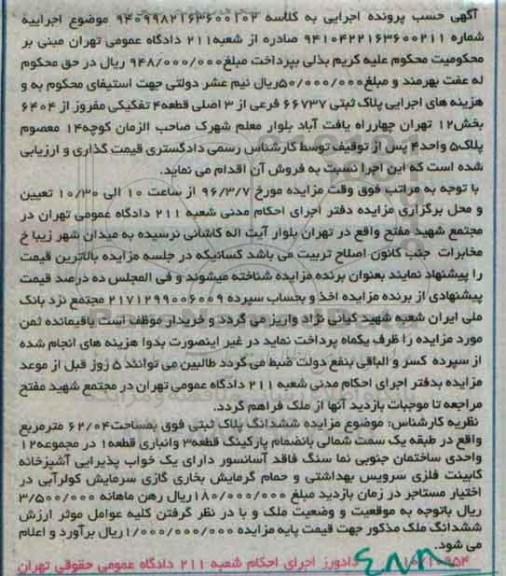 آگهی حسب پرونده اجرایی به کلاسه ۹۴۰۹۹۸۲۱۶۳۶۰۰۱۰۲ موضوع اجراییه
شماره ۹۴۱۰۴۲۲۱۶۳۶۰۰۲۱۱ صادره از شعبه۲۱۱ دادگاه عمومی تهران مبنی بر
محکومیت محکوم علیه کریم بذلی بپرداخت مبلغ۹۴۸/۰۰۰/۰۰۰ ریال در حق محکوم
له عفت بهرمند و مبلغ۵۰/۰۰۰/۰۰۰ریال نیم عشر دولتی جهت استیفای محکوم به و
هزینه های اجرایی پلاک ثبتی ۶۶۷۳۷ فرعی از ۳ اصلی قطعه۴ تفکیکی مفروز از ۶۴۰۴
بخش۱۲ تهران چهارراه یافت آباد بلوار معلم شهرک صاحب الزمان کوچه۱۴ معصوم
پلاک۵ واحد۴ پس از توقیف توسط کارشناس رسمی دادگستری قیمت گذاری و ارزیابی
شده است که این اجرا نسبت به فروش آن اقدام می نماید.
با توجه به مراتب فوق وقت مزایده مورخ ۹۶/۳/۷ از ساعت ۱۰ الی ۱۰/۳۰ تعیین
و محل برگزاری مزایده دفتر اجرای احکام مدنی شعبه ۲۱۱ دادگاه عمومی تهران در
مجتمع شهید مفتح واقع در تهران بلوار آیت اله کاشانی نرسیده به میدان شهر زیبا خ
مخابرات جنب کانون اصلاح تربیت می باشد کسانیکه در جلسه مزایده بالاترین قیمت
را پیشنهاد نمایند بعنوان برنده مزایده شناخته میشوند و فی المجلس ده درصد قیمت
پیشنهادی از برنده مزایده اخذ و بحساب سپرده ۲۱۷۱۲۹۹۰۰۶۰۰۹ مجتمع نزد بانک
ملی ایران شعبه شهید کیانی نژاد واریز می گردد و خریدار موظف است باقیمانده ثمن
مورد مزایده را ظرف یکماه پرداخت نماید در غیر اینصورت بدوا هزینه های انجام شده
از سپرده کسر و الباقی بنفع دولت ضبط می گردد طالبین می توانند ۵ روز قبل از موعد
مزایده بدفتر اجرای احکام مدنی شعبه ۲۱۱ دادگاه عمومی تهران در مجتمع شهید مفتح
مراجعه تا موجبات بازدید آنها از ملک فراهم گردد.
نظریه کارشناس: موضوع مزایده ششدانگ پلاک ثبتی فوق بمساحت۶۲/۰۴ مترمربع
واقع در طبقه یک سمت شمالی بانضمام پارکینگ قطعه۳ وانباری قطعه۱ در مجموعه۱۲
واحدی ساختمان جنوبی نما سنگ فاقد آسانسور دارای یک خواب پذیرایی آشپزخانه
کابینت فلزی سرویس بهداشتی و حمام گرمایش بخاری گازی سرمایش کولرآبی در
اختیار مستاجر در زمان بازدید مبلغ ۱۸۰/۰۰۰/۰۰۰ریال رهن ماهانه ۳/۵۰۰/۰۰۰
ریال باتوجه به موقعیت و وضعیت ملک و با در نظر گرفتن کلیه عوامل موثر ارزش
ششدانگ ملک مذکور جهت قیمت پایه مزایده ۱/۰۰۰/۰۰۰/۰۰۰ریال برآورد و اعلام
می شود.
دادورز اجرای احکام شعبه ۲۱۱ دادگاه عمومی حقوقی تهران